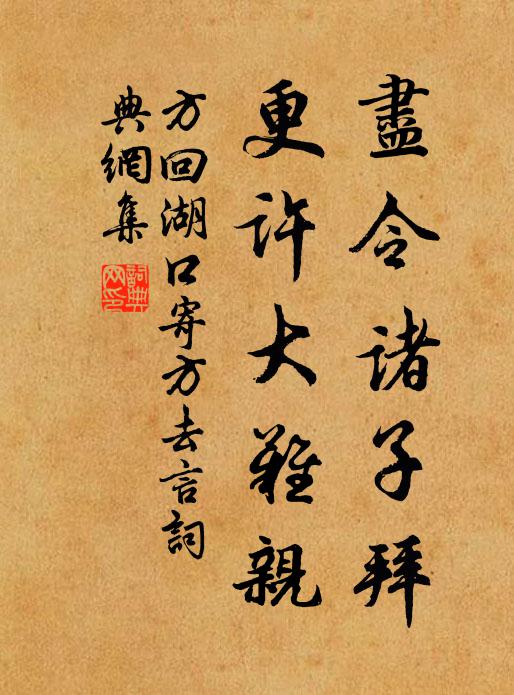 盡令諸子拜
更許大難親
方回湖口寄方去言詞
典網集
詞典网印